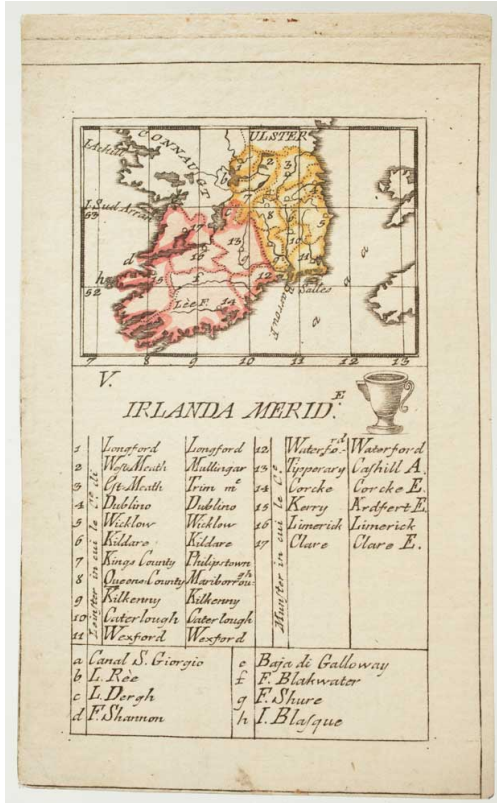 ULSTER
CONNAUGT
I. Achil
I. Sud Arran
53
52
2
3
b
7
8
5
c
10
17
16
13
9
11
d
h
15
f
12
g
Lèe F.
14
Salles
Barow F.
a
a
a
7 8 9 10 11 12 13
V.
IRLANDA MERID.E
Leinster in cui le Cee di
1 Longford Longford
2 West-Meath Mullingar
3 Est-Meath Trim me
4 Dublino Dublino
5 Wicklow Wicklow
6 Kildare Kildare
7 Kings County Philipstown
8 Queens County Mariborrough
9 Kilkenny Kilkenny
10 Caterlough Caterlough
11 Wexford Wexford
Munster in cui le Ce
12 Waterford Waterford
13 Tipperary Cashill A.
14 Corcke Corcke E.
15 Kerry Krdfert E.
16 Limerick Limerick
17 Clare Clare E.
a Canal S. Giorgio
b L. Rèe
c L. Dergh
d F. Shannon
e Baja di Galloway
f F. Blakwater
g F. Shure
h I. Blasque